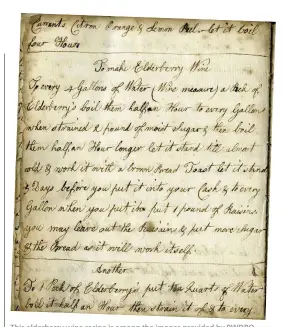 Currants Citron Orange & Lemon Peel - let it boil
four Hours
To make Elderberry Wine
To every 4 Gallons of Water (Wine measure) a Peck of
Elderberry's boil them half an Hour to every Gallon
when strained 2 pound of moist sugar & then boil
them half an Hour longer let it stand till almost
cold & work it with a brown Bread Toast let it stand
Days before you put it into your Cask & to every
Gallon when you put it in put 1 pound of Raisins
you may leave out the Raisins & put more sugar
& the Bread as it will work itself
Another
To 1 Peck of Elderberry's put two quarts of Water
boil it half an Hour then strain it off & to every
This elderberry wine recipe is among the images provided by